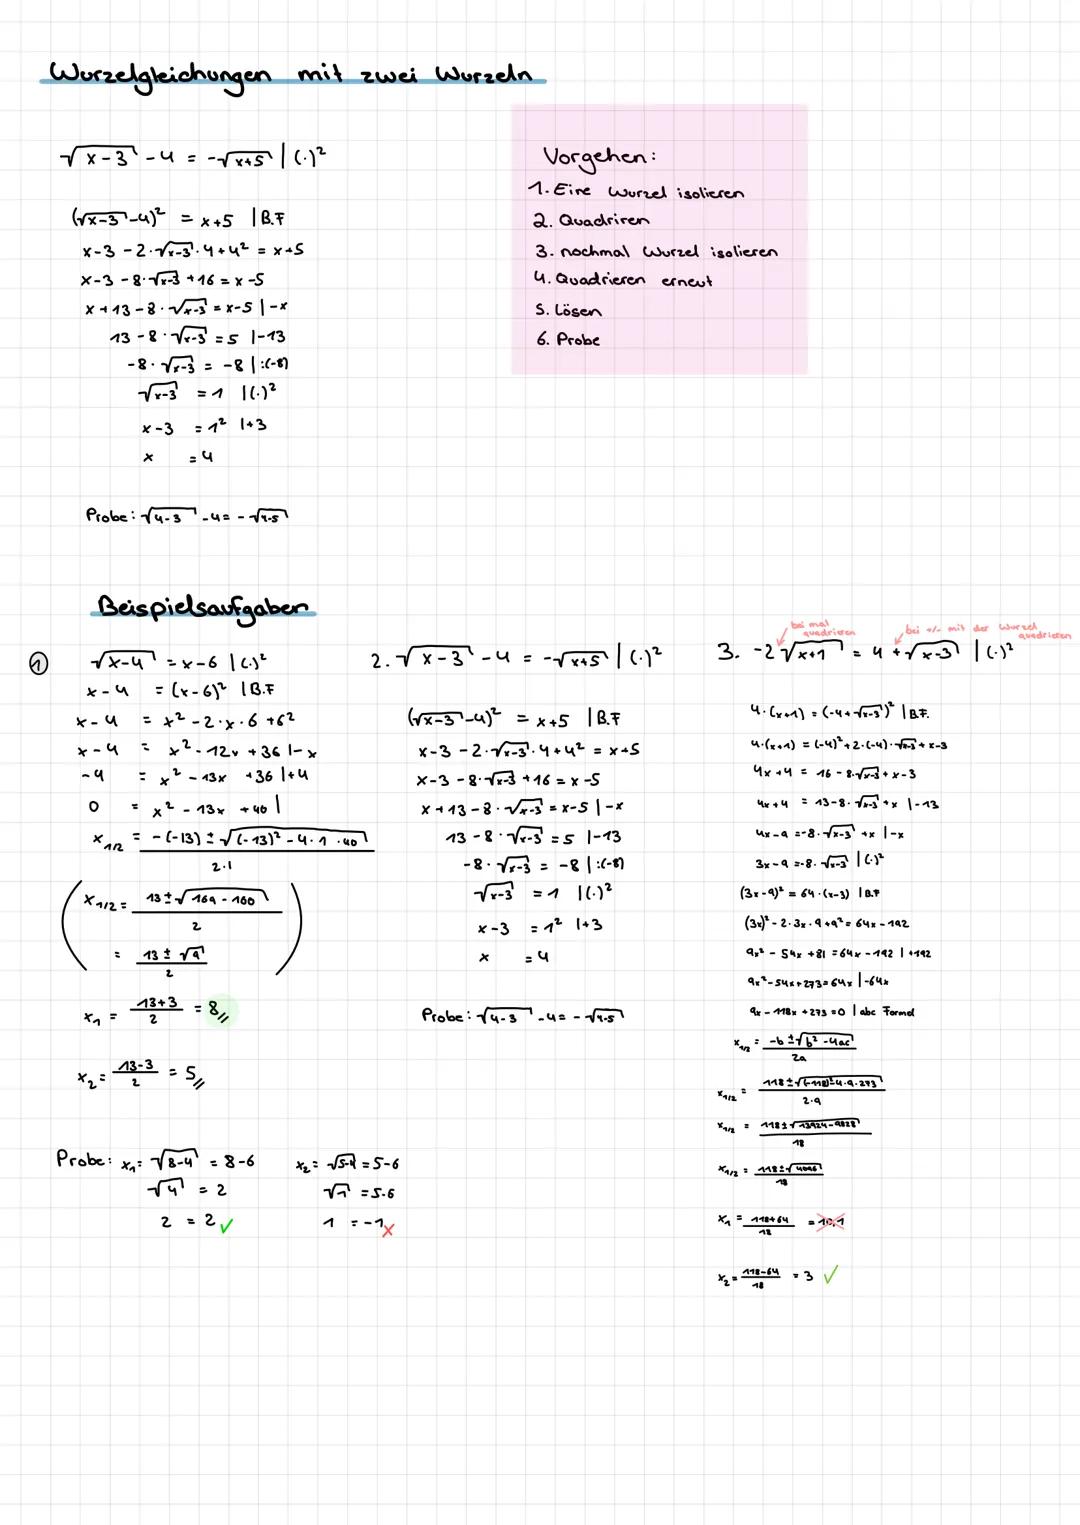 Wurzelgleichungen mit zwei Wurzeln
√(x-3) -4 = -√(x+5) | (·)²
(√(x-3)-4)² = x+5 | B.F
x-3 -2·√(x-3)·4+4² = x+5
x-3 -8·√(x-3) +16 = x -5
x+13-8·√(x-3) = x-5 | -x
13-8·√(x-3) = 5 | -13
-8·√(x-3) = -8 | :(-8)
√(x-3) = 1 | (·)²
x-3 = 1² | +3
x = 4
Probe: √(4-3) -4 = -√(4-5)
Vorgehen:
1. Eine Wurzel isolieren
2. Quadriren
3. nochmal Wurzel isolieren
4. Quadrieren erneut
5. Lösen
6. Probe
Beispielsaufgaben
① √(x-4) = x-6 | (·)²
x-4 = (x-6)² | B.F
x-4 = x² -2·x·6 +6²
x-4 = x² -12x +36 | -x
-4 = x² -13x +36 | +4
0 = x² -13x +40 |
x1/2 = (-(-13) ± √((-13)² -4·1·40)) / 2·1
x1/2 = (13 ± √(169-160)) / 2
= (13 ± √9) / 2
x₁ = (13+3) / 2 = 8
x₂ = (13-3) / 2 = 5
Probe: x₁ = √(8-4) = 8-6
√4 = 2
2 = 2 ✓
x₂ = √(5-4) = 5-6
√1 = 5-6
1 = -1 x
2. √(x-3) -4 = -√(x+5) | (·)²
(√(x-3)-4)² = x+5 | B.F
x-3 -2·√(x-3)·4+4² = x+5
x-3 -8·√(x-3) +16 = x -5
x+13-8·√(x-3) = x-5 | -x
13-8·√(x-3) = 5 | -13
-8·√(x-3) = -8 | :(-8)
√(x-3) = 1 | (·)²
x-3 = 1² | +3
x = 4
Probe: √(4-3) -4 = -√(4-5)
bei mal
quadrieren
bei +/- mit der Wurzel
quadrieren
3. -2√(x+1) = 4+√(x-3) | (·)²
4·(x+1) = (-4+√(x-3))² | B.F.
4·(x+1) = (-4)²+2·(-4)·√(x-3)+x-3
4x+4 = 16-8·√(x-3)+x-3
4x+4 = 13-8·√(x-3)+x | -13
4x-9 = -8·√(x-3)+x | -x
3x-9 = -8·√(x-3) | (·)²
(3x-9)² = 64·(x-3) | B.F
(3x)²-2·3x·9+9² = 64x-192
9x²-54x+81 = 64x-192 | +192
9x²-54x+273 = 64x | -64x
9x-118x+273 = 0 | abc Formel
x1/2 = (-b ± √(b²-4ac)) / 2a
x1/2 = (118 ± √((-118)²-4·9·273)) / 2·9
x1/2 = (118 ± √(13924-9828)) / 18
x1/2 = (118 ± √4096) / 18
x₁ = (118+64) / 18 = 10,1
x₂ = (118-64) / 18 = 3 ✓